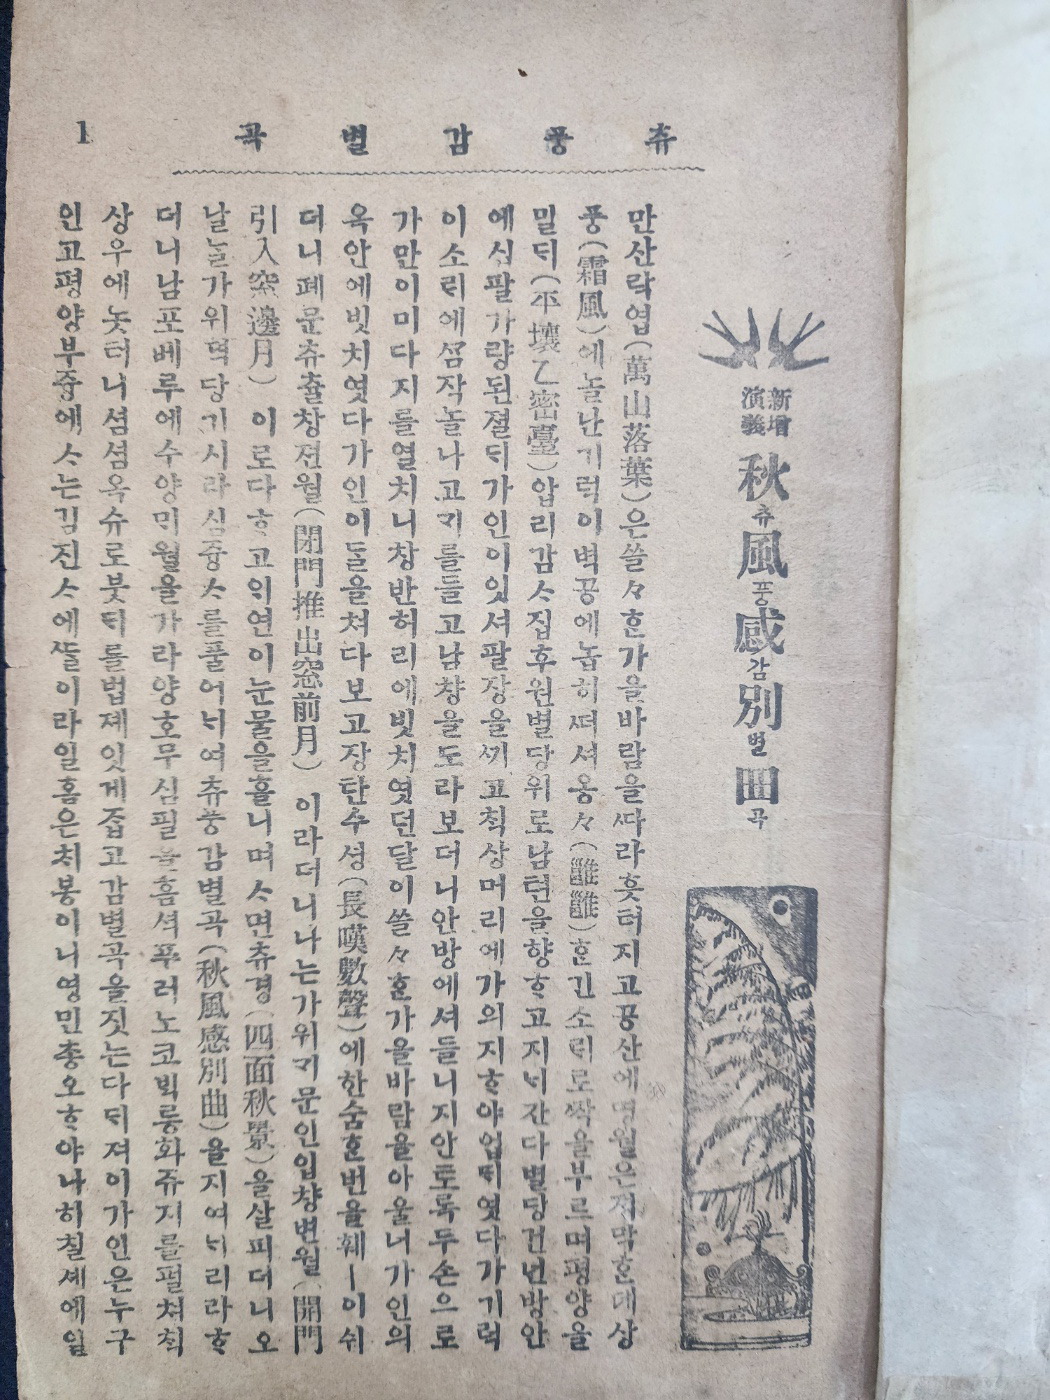 츄풍감별곡 1
新增
演義
秋츄風풍感감別별曲곡
만산락엽(萬山落葉)은쓸々ᄒᆞᆫ가을바람을ᄯᅡ라흣터지고공산에명월은적막ᄒᆞᆫ대상
풍(霜風)에놀난기럭이벽공에놉히ᄯᅥ셔옹々(雝雝)ᄒᆞᆫ긴소ᄅᆡ로ᄶᅡᆨ을부르며평양을
밀ᄃᆡ(平壤乙密臺)압리감ᄉᆞ집후원별당위로남텬을향ᄒᆞ고지ᄂᆡ간다별당건넌방안
에십팔가량된졀ᄃᆡ가인이잇셔팔장을ᄭᅵ고칙상머리에가의지ᄒᆞ야업ᄃᆡ엿다가기럭
이소ᄅᆡ에셤작놀나고ᄀᆡ를들고남챵을도라보더니안방에셔들니지안토록두손으로
가만이미다지를열치니창반허리에빗치엿던달이쓸々ᄒᆞᆫ가을바람을아울너가인의
옥안에빗치엿다가인이돌을쳐다보고장탄수셩(長嘆數聲)에한숨ᄒᆞᆫ번을훼ㅣ이쉬
더니폐문츄츌창젼월(閉門推出窓前月) 이라더니나는가위ᄀᆡ문인입챵변월(開門
引入窓邊月) 이로다ᄒᆞ고의연이눈물을흘니며ᄉᆞ면츄경(四面秋景)을살피더니오
날놀가위덕당기시라심즁ᄉᆞ를풀어ᄂᆡ여츄풍감별곡(秋風感別曲)을지여ᄂᆡ리라ᄒᆞ
더니남포베루에수양ᄆᆡ월을가라양호무심필을홈셕푸러노코ᄇᆡᆨ릉화쥬지를펼쳐칙
상우에놋터니셤셤옥슈로붓ᄃᆡ를법졔잇게줍고감별곡을짓는다ᄃᆡ져이가인은누구
인고평양부즁에ᄉᆞ는김진ᄉᆞ에ᄯᆞᆯ이라일홈은ᄎᆡ봉이니영민총오ᄒᆞ야나히칠셰에일